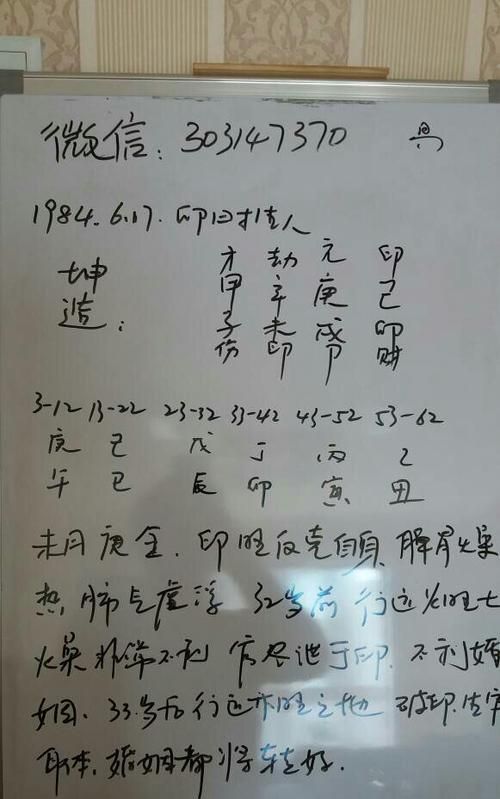 微信：303147370
1984.6.17. 卯时 桂人
坤 才 劫 元 印
甲 辛 庚 己
造： 子 未 戌 卯
伤 印 卩 财
3-12 13-22 23-32 33-42 43-52 53-62
庚 己 戊 丁 丙 乙
午 巳 辰 卯 寅 丑
未月庚金，印旺反克自身，脾胃燥
热肺气虚浮 32岁前行运火旺土
火燥 不利 官尽泄于印，不利婚
姻。33岁后行运木旺之地 破印生官
婚姻都将转好.